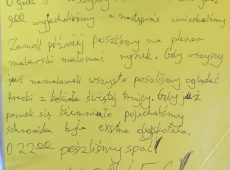 900 wyjechaliśmy a następnie zwiedzaliśmy
Zamość później poszliśmy na plener
malarski malować rynek. Gdy wszyscy
już namalowali wszyscy poszliśmy oglądać
freski z kościoła świętej trójcy. Gdy już
powoli się ściemniało pojechaliśmy
schronisko była ekstra dyskoteka.
O 22 00 poszliśmy spać